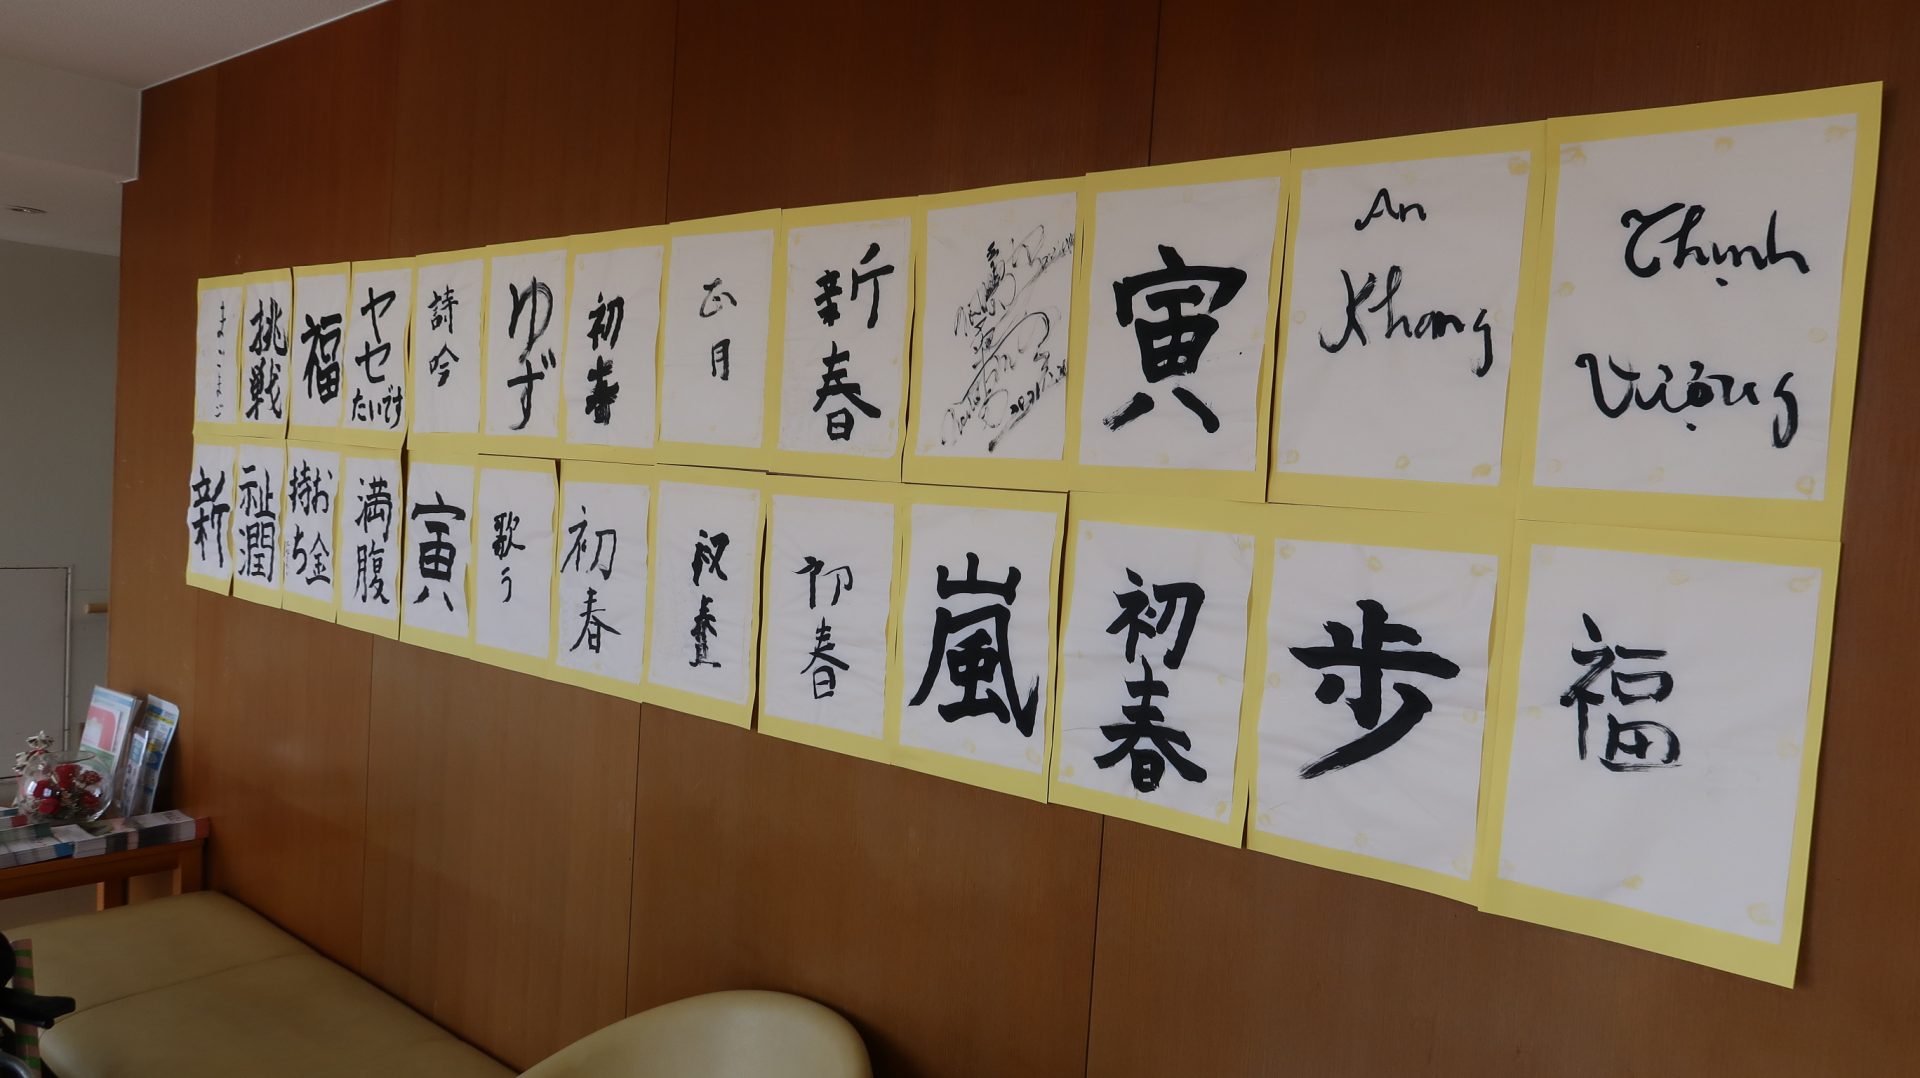 挑戦
福
ヤセ
たいです
詩吟
ゆず
初春
正月
新春
寅
An
Khang
Thịnh
Vượng
新
祉潤
お金
持ち
満腹
寅
歌う
初春
祝
初春
嵐
初春
歩
福